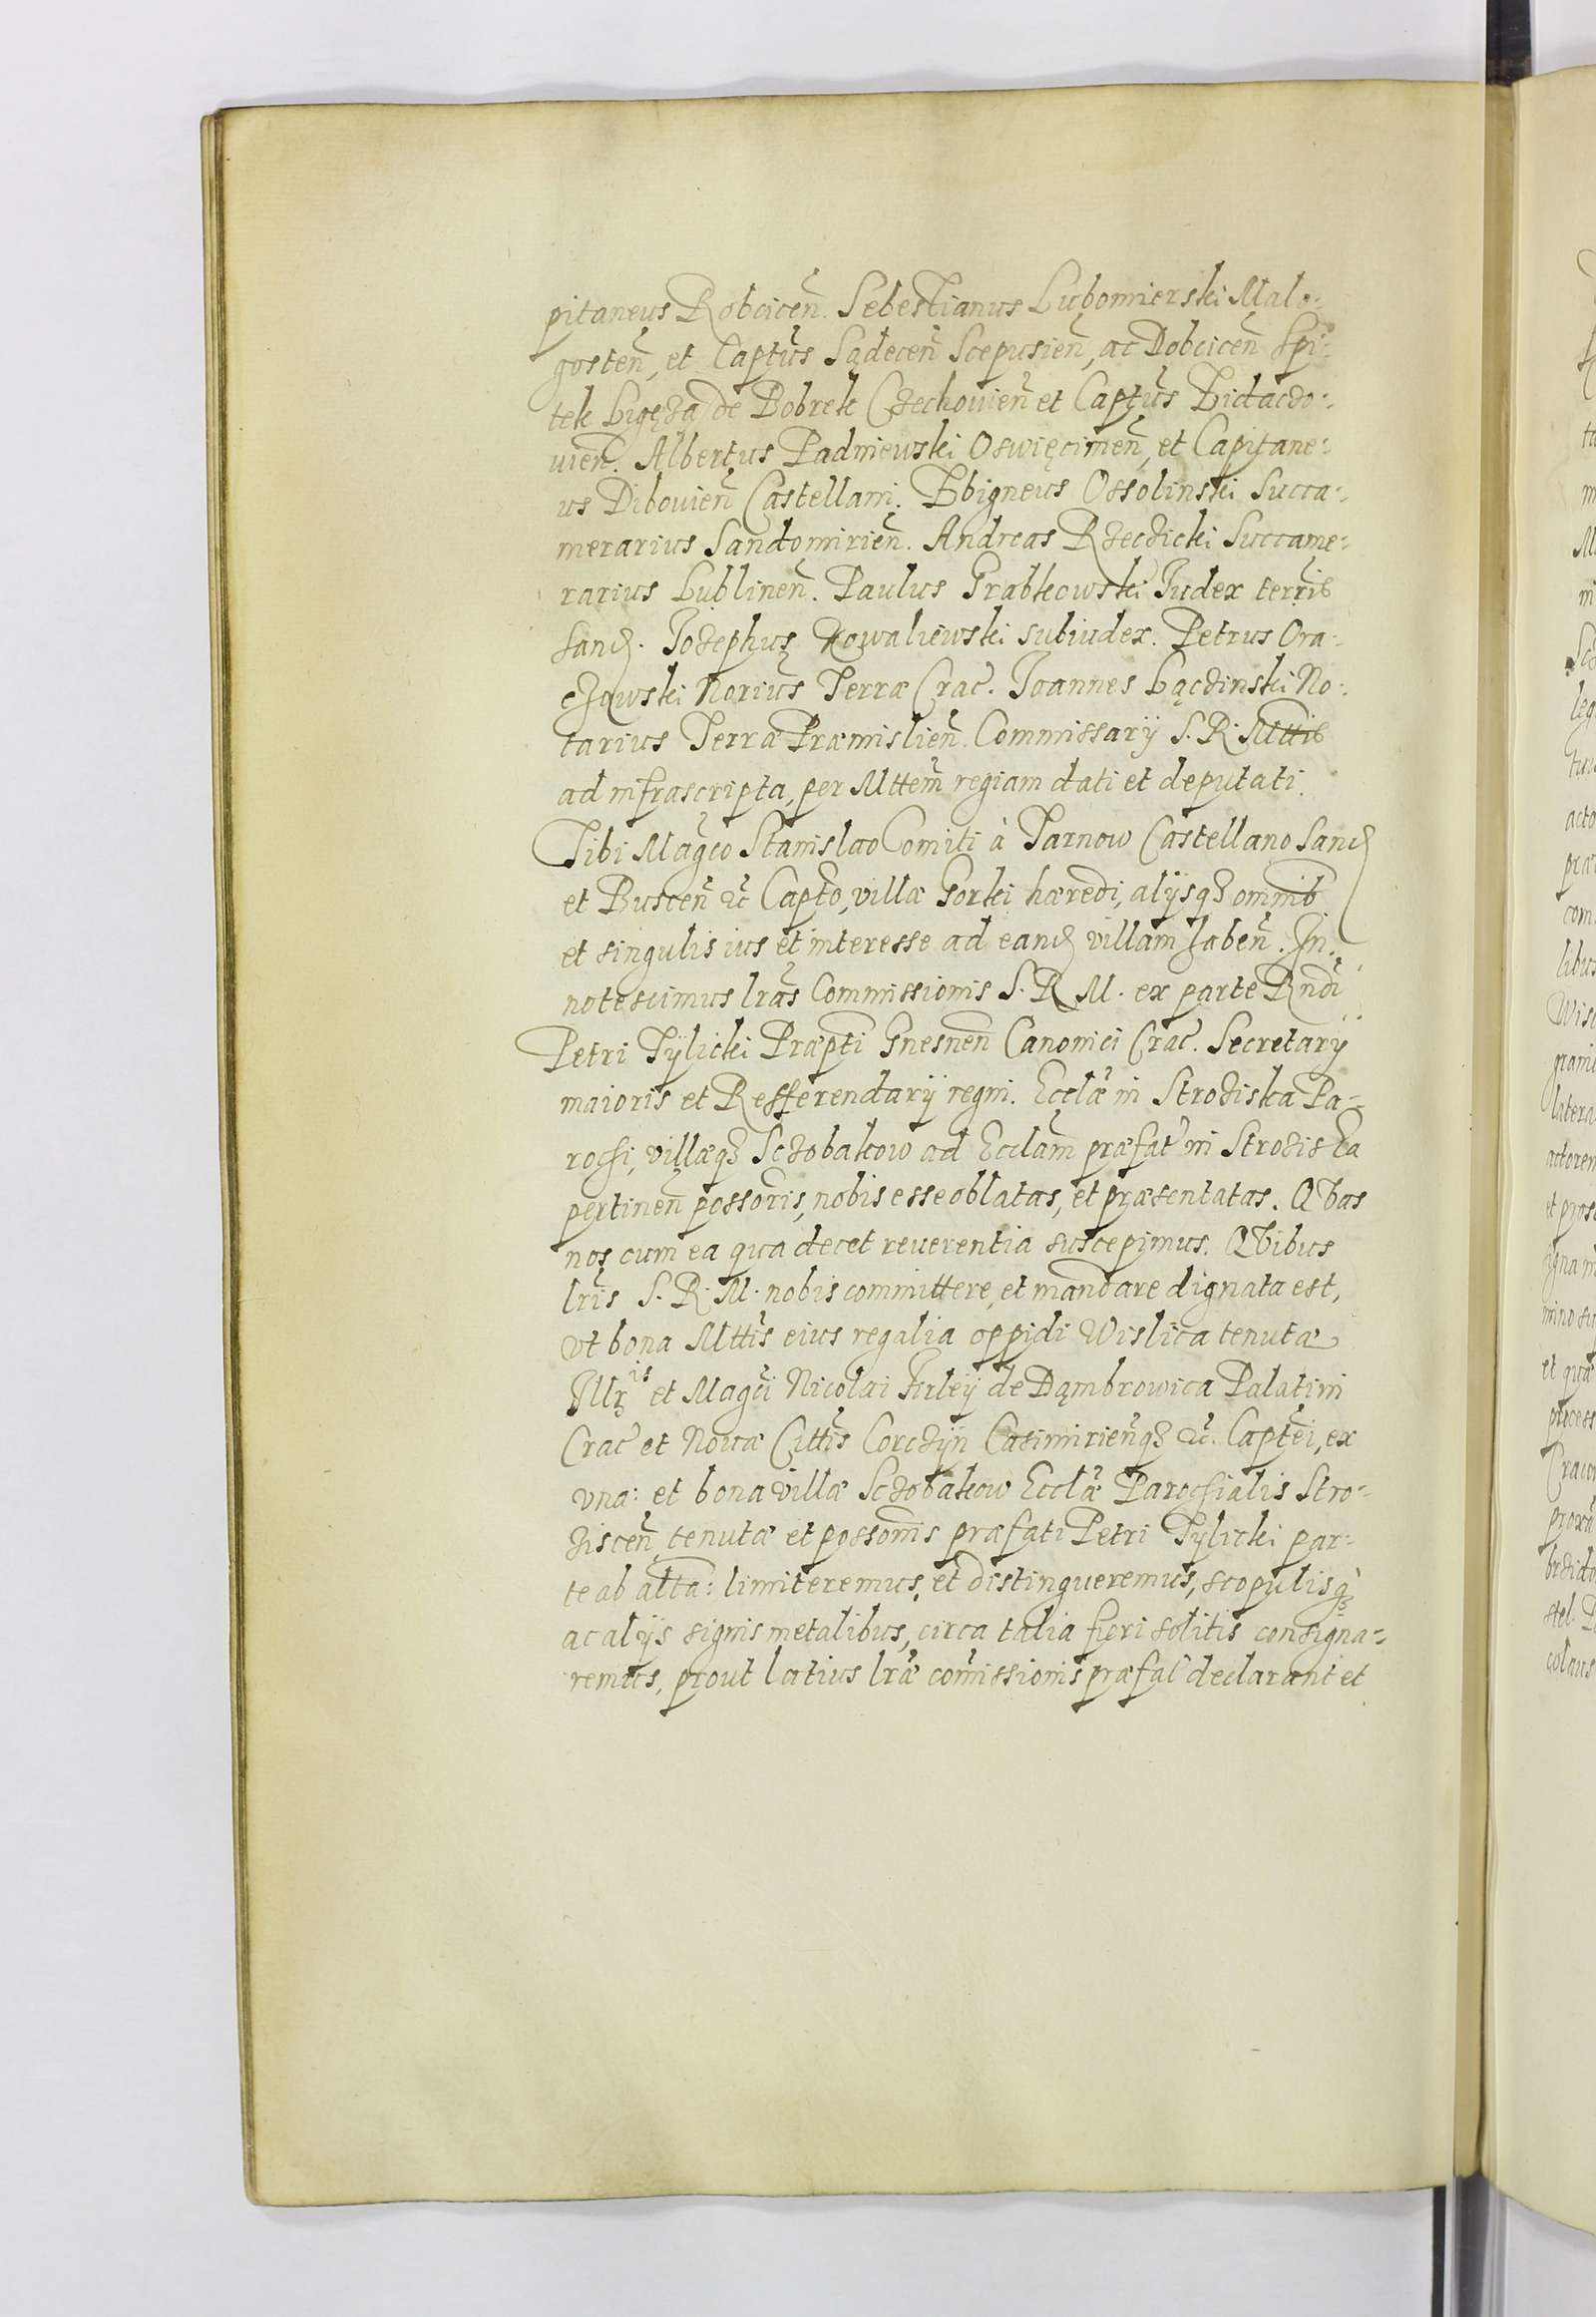 pitaneus Robcicen̄. Sebestianus Lubomierski Malo-
gosten̄, et Captus̄ Sądecen̄ Scepusien̄, ac Dobcicen̄ Spi-
tek Ligęza de Bobrek Czechouien̄ et Captus̄ Zidaczo-
uien̄. Albertus Padniewski Oswięcimen̄, et Capitane-
us Dibouien̄ Castellani. Zbigneus Ossolinski Succa-
merarius Sandomirien̄. Andreas Rzeczicki Succame-
rarius Lublinen̄. Paulus Grabkowski Judex terris̄
Sand. Jozephus Kowaliewski subiudex. Petrus Ora-
czowski Norius̄ Terræ Crac̄. Joannes Łączinski No-
tarius Terræ Præmislien̄. Commissarij S. R. Mttis
ad infrascripta, per Mttem̄ regiam dati et deputati.
Tibi Magco Stanislao Comiti à Tarnow Castellano Sand
et Buscen̄ etc̄ Capto, villæ Gorki hæredi, alijsqȝ omnib
et singulis ius et interesse ad eand villam haben̄. In-
notescimus lrās Commissionis S. R. M. ex parte Rndi
Petri Tÿlicki Præpti Gnesnen̄ Canonici Crac̄. Secretarij
maioris et Refferendarij regni. Ecclæ in Stroziska Pa-
rochi, villæqȝ Sczobakow ad Ecclam̄ præfat̄ in Stroziska
pertinen̄ possoris̄, nobis esse oblatas, et præsentatas. Qvas
nos cum ea qua decet reuerentia suscepimus. Qvibus
lrīs S. R. M. nobis committere, et mandare dignata est,
vt bona Mttis̄ eius regalia oppidi Wislica tenutæ
Illris et Magci Nicolai Firleÿ de Dąmbrowica Palatini
Crac̄ et Nouæ Cittis̄ Corczÿn Casimirien̄qȝ etc̄. Captei, ex
vna: et bona villæ Sczobakow Ecclæ Parochialis Stro-
ziscen̄, tenutæ et possonis̄ præfati Petri Tylicki par-
te ab alta: limiteremus, et distingueremus, scopulisqȝ
ac alijs signis metalibus, circa talia fieri solitis consigna-
remus, prout latius lræ com̄issionis præfat̄ declarant et